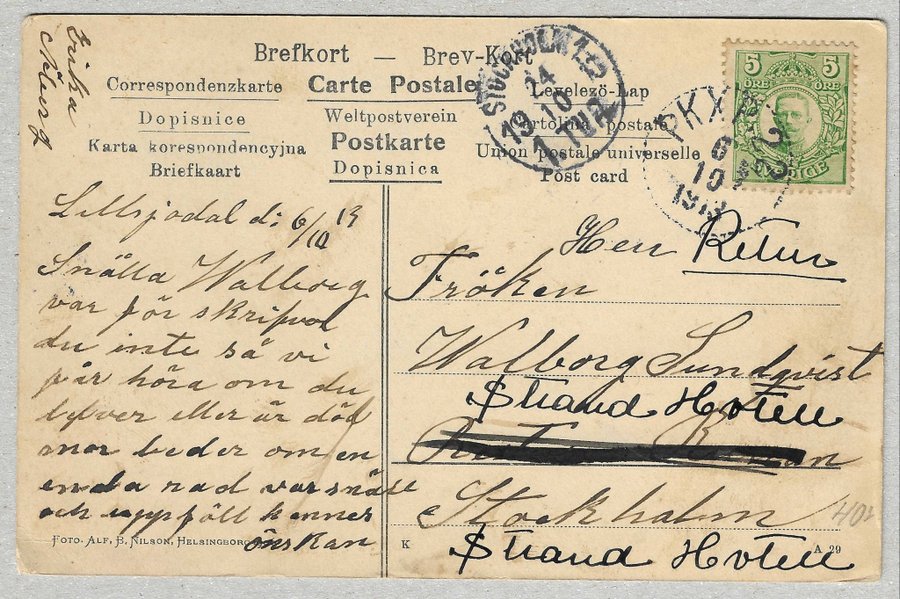 Erika
Åberg
Brefkort — Brev-Kort
Correspondenzkarte Carte Postale Levelező-Lap
Dopisnice Weltpostverein Cartolina postale
Karta korespondencyjna Postkarte Union postale universelle
Briefkaart Dopisnica Post card
STOCKHOLM 15
24
10
19
1.TUR
PKXP
6
10
1913
5 5
ÖRE ÖRE
SVERIGE
Lillsjödal d: 6/10 13
Snälla Walborg
var för skrifver
du inte så vi
får höra om du
lefver eller är död
mor beder om en
enda nad var snäll
och uppfyll hennes
önskan
Retur
Fröken
Walborg Sundqvist
Strand Hotell
Stockholm
Strand Hotell
FOTO. ALF. B. NILSON, HELSINGBORG
K
A 29